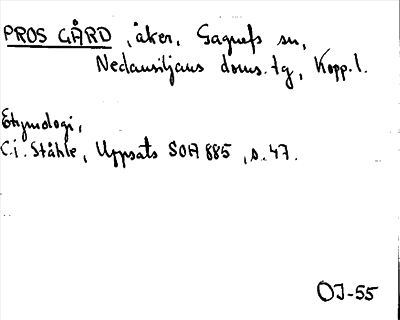 PROS GÅRD, åker, Gagnefs sn,
Nedansiljans doms.tg, Kopp.l.
Etymologi,
C.i. Ståhle, Uppsats SOA 885, s. 47.
OJ-55